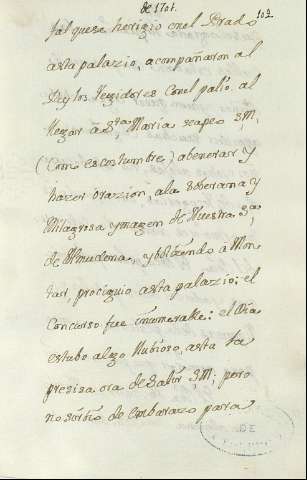 de 1701. 102
tal quese herigio enel Prado
asta palazio, acompañaron al
Rey los Regidores Conel palio, al
llegar à Sta. Maria se apeo S.M,
(Como es costumbre) abenerar y
hazer orazion, ala soberana y
Milagrosa ymagen de Nuestra Sa.
de Almudena, y bolbiendo a Mon
tar, prociguio asta palazio; el
Concurso fue ynnumerable: el dia
estubo algo llubioso, asta la
presisa ora de Salir S.M; pero
no sirbio de embarazo para